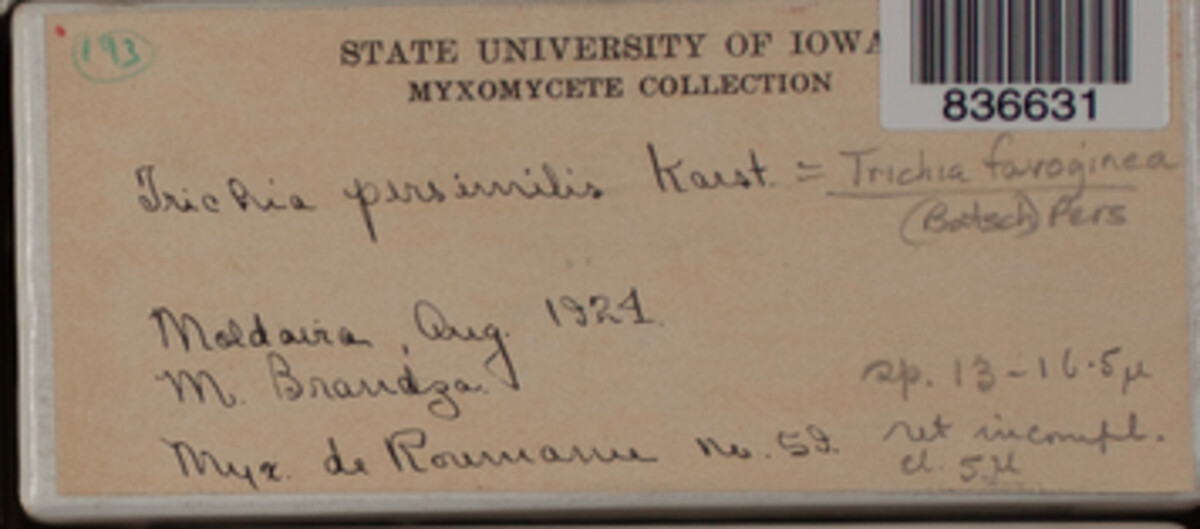 193
STATE UNIVERSITY OF IOWA
MYXOMYCETE COLLECTION
836631
Trichia persimilis Karst. = Trichia favoginea
(Batsch) Pers
Moldavia, Aug. 1924.
M. Brandza.
sp. 13-16.5μ
Myx. de Roumanie no. 59.
ret incompl.
el. 5μ